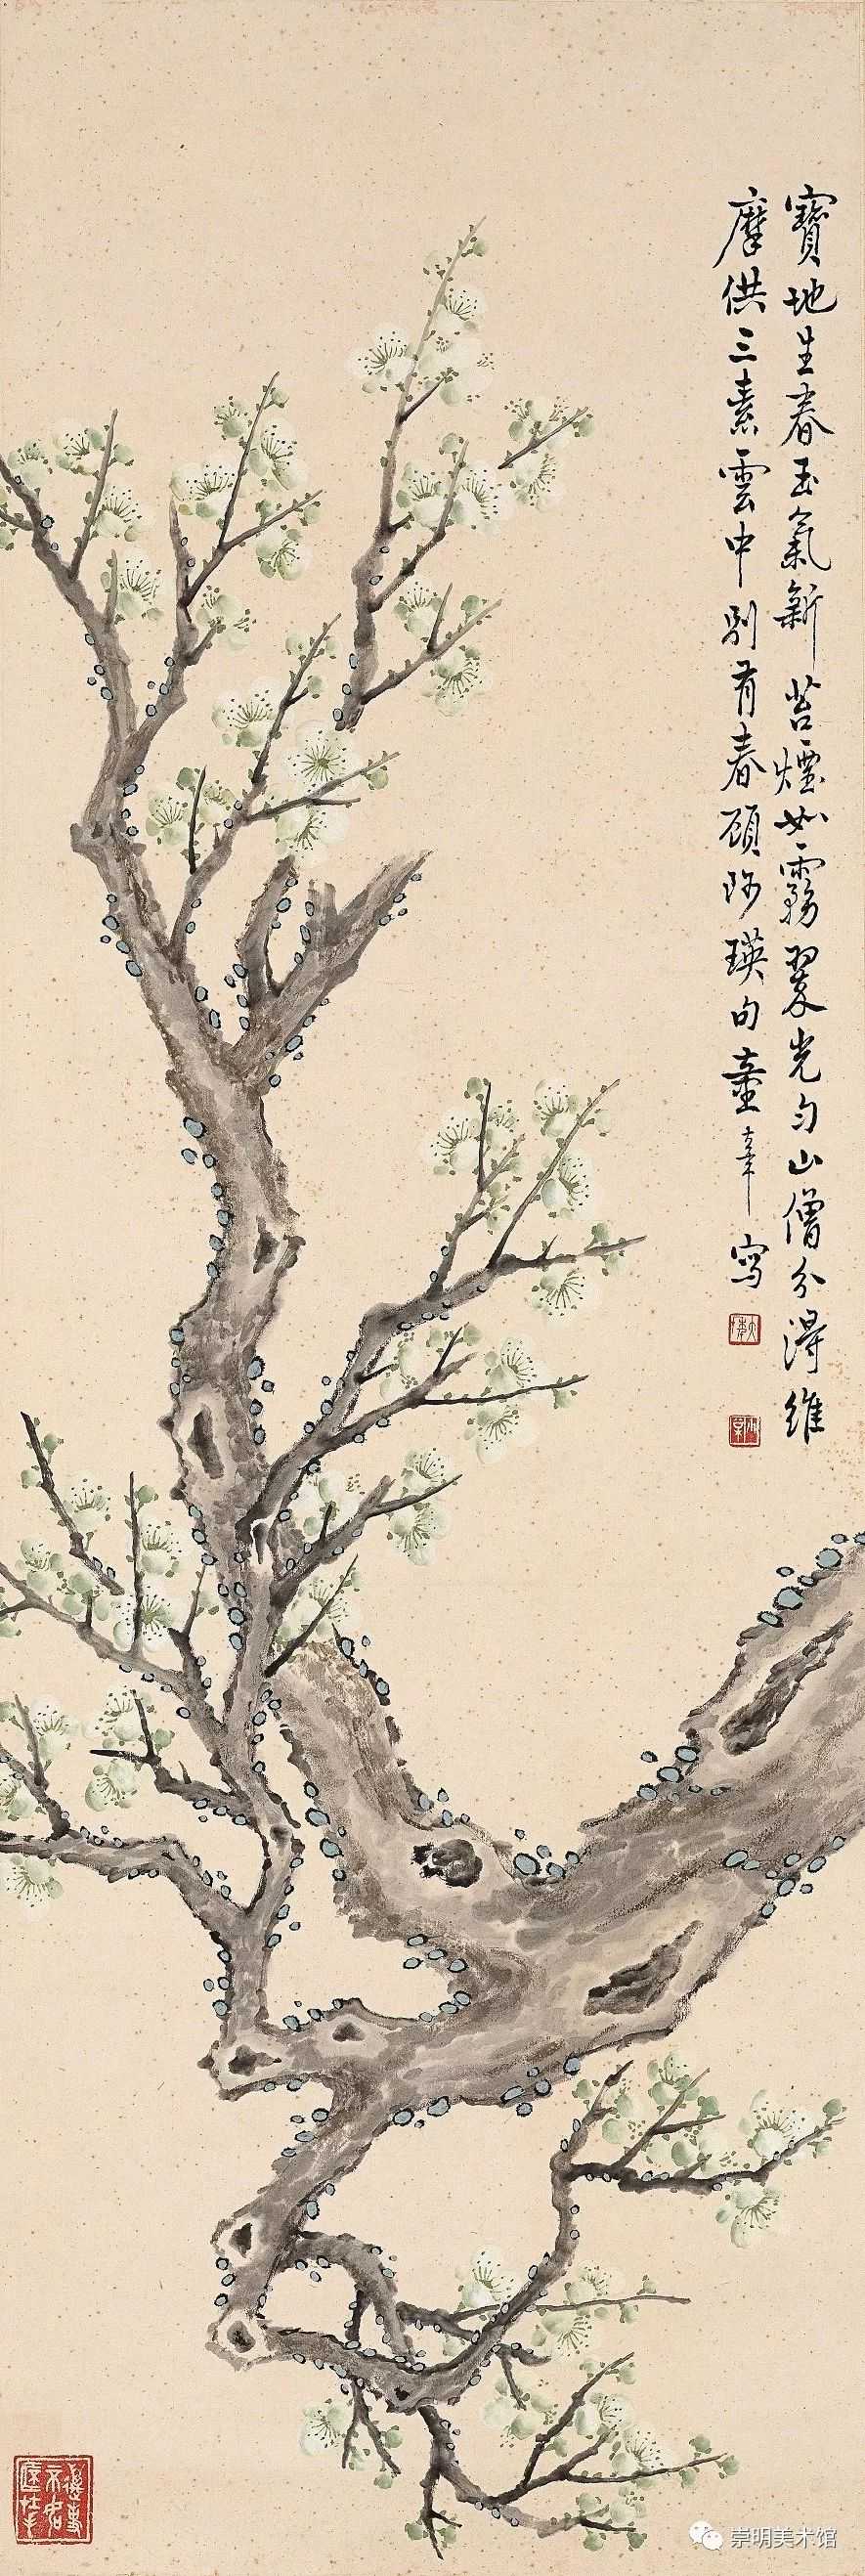 寶地生春玉氣新苔煙如霧翠光勻山僧分得維
摩供三素雲中別有春顧阿瑛句 寫
崇明美术馆